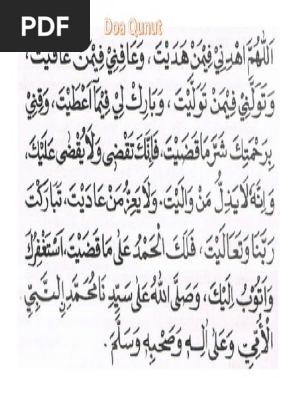 PDF
Doa Qunut
اَللّٰهُمَّ اهْدِنِيْ فِيْمَنْ هَدَيْتَ، وَعَافِنِيْ فِيْمَنْ عَافَيْتَ،
وَتَوَلَّنِيْ فِيْمَنْ تَوَلَّيْتَ، وَبَارِكْ لِيْ فِيْمَا أَعْطَيْتَ، وَقِنِيْ
بِرَحْمَتِكَ شَرَّ مَا قَضَيْتَ، فَإِنَّكَ تَقْضِيْ وَلَا يُقْضٰى عَلَيْكَ،
وَإِنَّهُ لَا يَذِلُّ مَنْ وَالَيْتَ، وَلَا يَعِزُّ مَنْ عَادَيْتَ، تَبَارَكْتَ
رَبَّنَا وَتَعَالَيْتَ، فَلَكَ الْحَمْدُ عَلٰى مَا قَضَيْتَ، اَسْتَغْفِرُكَ
وَاَتُوْبُ اِلَيْكَ، وَصَلَّى اللهُ عَلٰى سَيِّدِنَا مُحَمَّدٍ اِلنَّبِيِّ
الْأُمِّيِّ وَعَلٰى اٰلِهٖ وَصَحْبِهٖ وَسَلَّمَ.